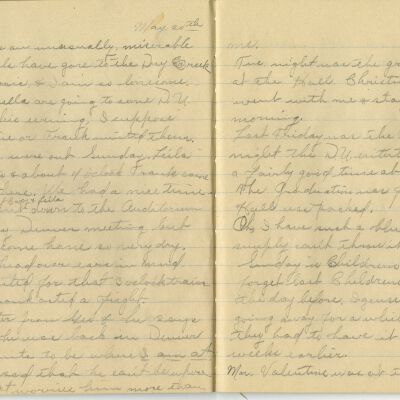 May 20th
an unusually, miserable
have gone to the Dry Creek
& I am so lonesome.
are going to some D.U.
this evening, I suppose
or Frank invited them.
were out Sunday, Leila
& about 4 oclock Frank came
We had a nice time.
& Leila
down to the Auditorium
Denver meeting but
come home so very dry.
head over ears in mud
for that 3 oclock train
a freight.
from Geo & he says
he was back in Denver
to be where I am at
that he can't be up here
worries him more than
me.
Tue. night was the
at the Hall Christ
went with me & sta
morning.
Last Friday was the
night the D.U. entert
a fairly good time at
The Graduation was
Hall was packed.
Oh, I have such a blue
simply can't throw it
Sunday is Childrens
forget last Childrens
Sunday before, Iguess
going away for a whil
they had to have it
weeks earlier.
Mrs. Valentine was at